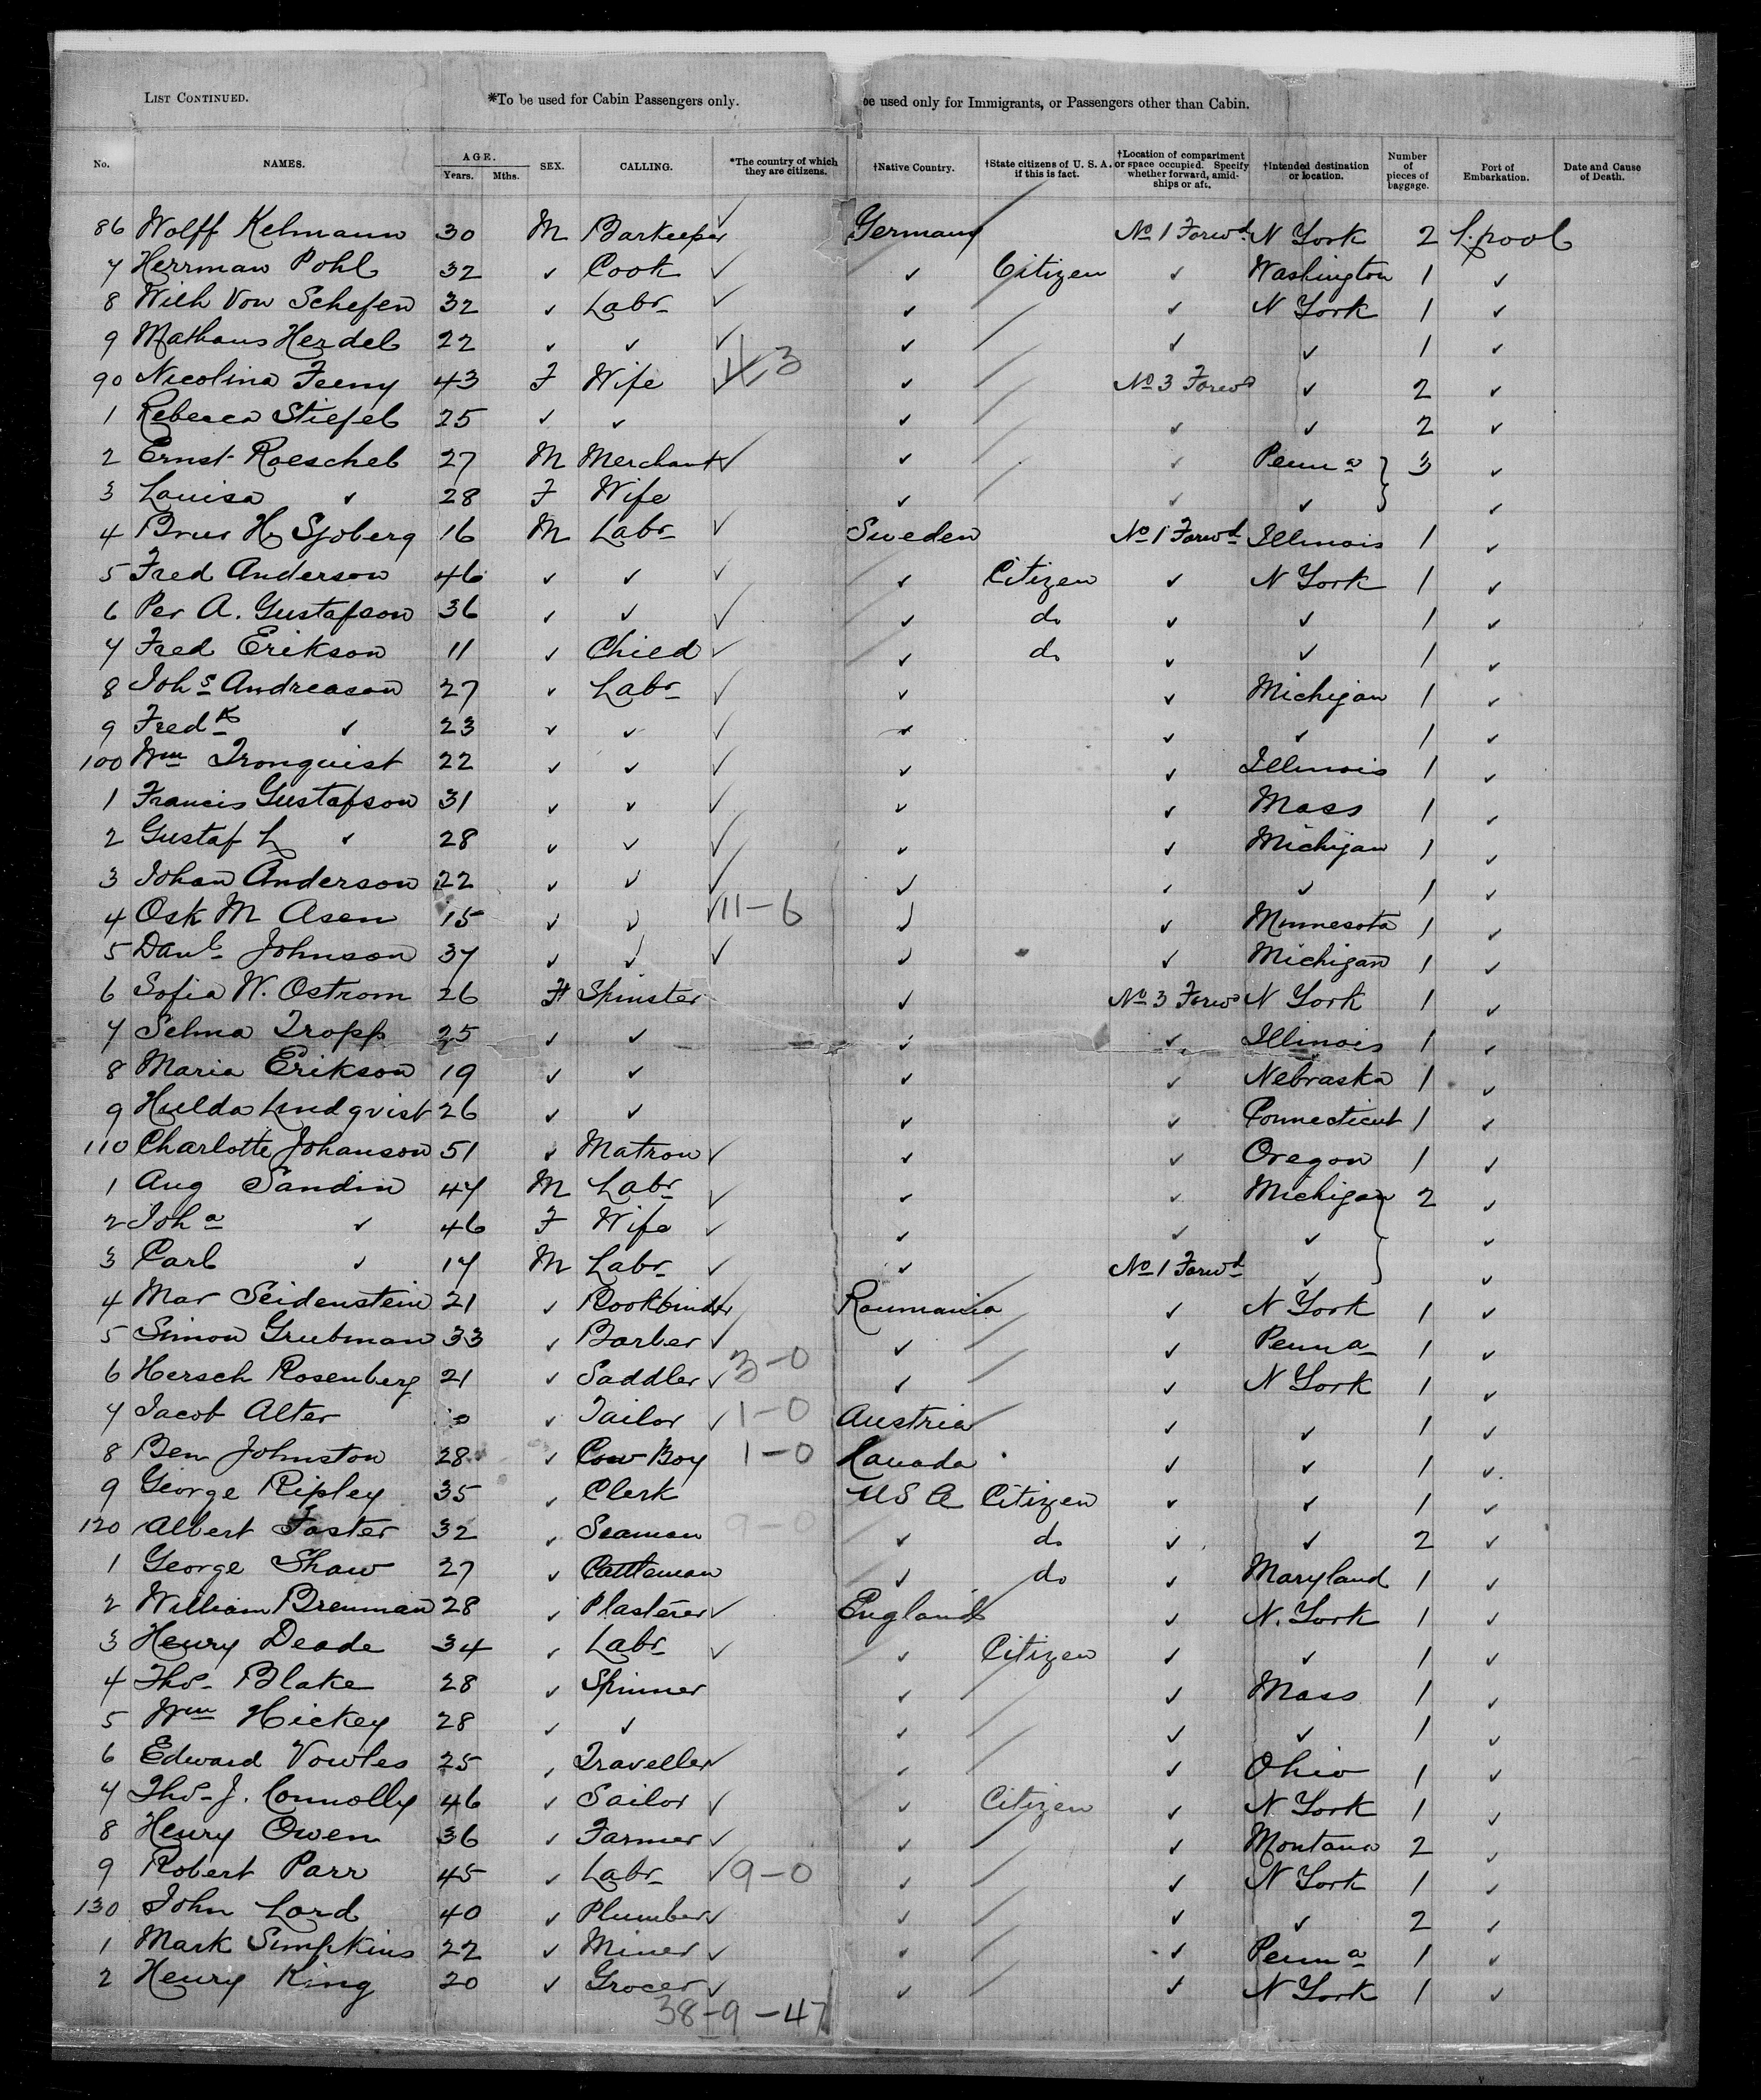 LIST CONTINUED. *To be used for Cabin Passengers only. be used only for Immigrants, or Passengers other than Cabin.
No. NAMES. AGE. Years. Mths. SEX. CALLING. *The country of which they are citizens. †Native Country. †State citizens of U. S. A. if this is fact. †Location of compartment or space occupied. Specify whether forward, amidships or aft. †Intended destination or location. Number of pieces of baggage. Port of Embarkation. Date and Cause of Death.
86 Wolff Kelmann 30 M Barkeeper ✓ Germany No 1 Forwd N York 2 L.pool
7 Herrman Pohl 32 ✓ Cook ✓ ✓ Citizen ✓ Washington 1 ✓
8 Wilh Von Schefen 32 ✓ Labr ✓ ✓ ✓ N York 1 ✓
9 Mathaus Herdel 22 ✓ ✓ ✓ ✓ ✓ ✓ 1 ✓
90 Nicolina Feeny 43 F Wife ✓ 3 ✓ No 3 Forwd ✓ 2 ✓
1 Rebecca Stiefel 25 ✓ ✓ ✓ ✓ ✓ 2 ✓
2 Ernst Roeschel 27 M Merchant ✓ ✓ ✓ Penna 3 ✓
3 Louisa ✓ 28 F Wife ✓ ✓ ✓ ✓
4 Brur Hj Sjoberg 16 M Labr ✓ Sweden No 1 Forwd Illinois 1 ✓
5 Fred Anderson 46 ✓ ✓ ✓ ✓ Citizen ✓ N York 1 ✓
6 Per A. Gustafson 36 ✓ ✓ ✓ ✓ do ✓ ✓ 1 ✓
7 Fred Erikson 11 ✓ Child ✓ ✓ do ✓ ✓ 1 ✓
8 Johs Andreason 27 ✓ Labr ✓ ✓ ✓ Michigan 1 ✓
9 Fredk ✓ 23 ✓ ✓ ✓ ✓ ✓ ✓ 1 ✓
100 Wm Tronquist 22 ✓ ✓ ✓ ✓ ✓ Illinois 1 ✓
1 Francis Gustafson 31 ✓ ✓ ✓ ✓ ✓ Mass 1 ✓
2 Gustaf L ✓ 28 ✓ ✓ ✓ ✓ ✓ Michigan 1 ✓
3 Johan Anderson 22 ✓ ✓ ✓ ✓ ✓ ✓ 1 ✓
4 Osk M Asen 15 ✓ ✓ ✓ 11-6 ✓ ✓ Minnesota 1 ✓
5 Danl Johnson 37 ✓ ✓ ✓ ✓ ✓ Michigan 1 ✓
6 Sofia W. Ostrom 26 F Spinster ✓ No 3 Forwd N York 1 ✓
7 Selma Tropp 25 ✓ ✓ ✓ ✓ Illinois 1 ✓
8 Maria Erikson 19 ✓ ✓ ✓ ✓ Nebraska 1 ✓
9 Hulda Lindqvist 26 ✓ ✓ ✓ ✓ Connecticut 1 ✓
110 Charlotte Johanson 51 ✓ Matron ✓ ✓ ✓ Oregon 1 ✓
1 Aug Sandin 47 M Labr ✓ ✓ ✓ Michigan 2 ✓
2 Joha ✓ 46 F Wife ✓ ✓ ✓ ✓ ✓
3 Carl ✓ 17 M Labr ✓ ✓ No 1 Forwd ✓ ✓
4 Mar Seidenstein 21 ✓ Bookbinder ✓ Roumania ✓ N York 1 ✓
5 Simon Grubman 33 ✓ Barber ✓ ✓ ✓ Penna 1 ✓
6 Hersch Rosenberg 21 ✓ Saddler ✓ 3-0 ✓ ✓ N York 1 ✓
7 Jacob Alter ✓ Tailor ✓ 1-0 Austria ✓ ✓ 1 ✓
8 Ben Johnston 28 ✓ Cow Boy 1-0 Canada ✓ ✓ 1 ✓
9 George Ripley 35 ✓ Clerk U S A Citizen ✓ ✓ 1 ✓
120 Albert Foster 32 ✓ Seaman 9-0 ✓ do ✓ ✓ 2 ✓
1 George Shaw 27 ✓ Cattleman ✓ do ✓ Maryland 1 ✓
2 William Brennan 28 ✓ Plasterer ✓ England ✓ N. York 1 ✓
3 Henry Deade 34 ✓ Labr ✓ ✓ Citizen ✓ ✓ 1 ✓
4 Thos Blake 28 ✓ Spinner ✓ ✓ Mass 1 ✓
5 Wm Hickey 28 ✓ ✓ ✓ ✓ ✓ 1 ✓
6 Edward Vowles 25 ✓ Traveller ✓ ✓ ✓ Ohio 1 ✓
7 Thos J. Connolly 46 ✓ Sailor ✓ ✓ Citizen ✓ N York 1 ✓
8 Henry Owen 36 ✓ Farmer ✓ ✓ ✓ Montana 2 ✓
9 Robert Parr 45 ✓ Labr ✓ 9-0 ✓ ✓ N York 1 ✓
130 John Lord 40 ✓ Plumber ✓ ✓ ✓ ✓ 2 ✓
1 Mark Simpkins 22 ✓ Miner ✓ ✓ ✓ Penna 1 ✓
2 Henry King 20 ✓ Grocer ✓ ✓ ✓ N York 1 ✓
38-9-47